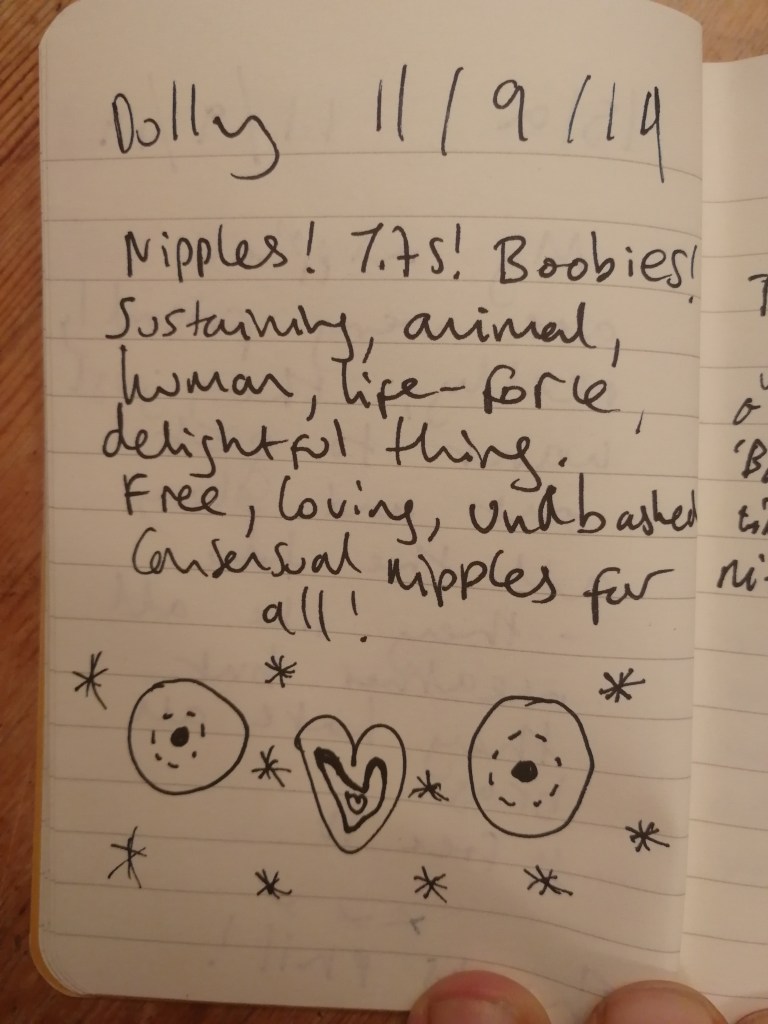 Dolly 11/9/19
Nipples! T.Ts! Boobies!
Sustaining, animal,
human, life-force,
delightful thing.
Free, loving, unabashed
Consensual nipples for
all!